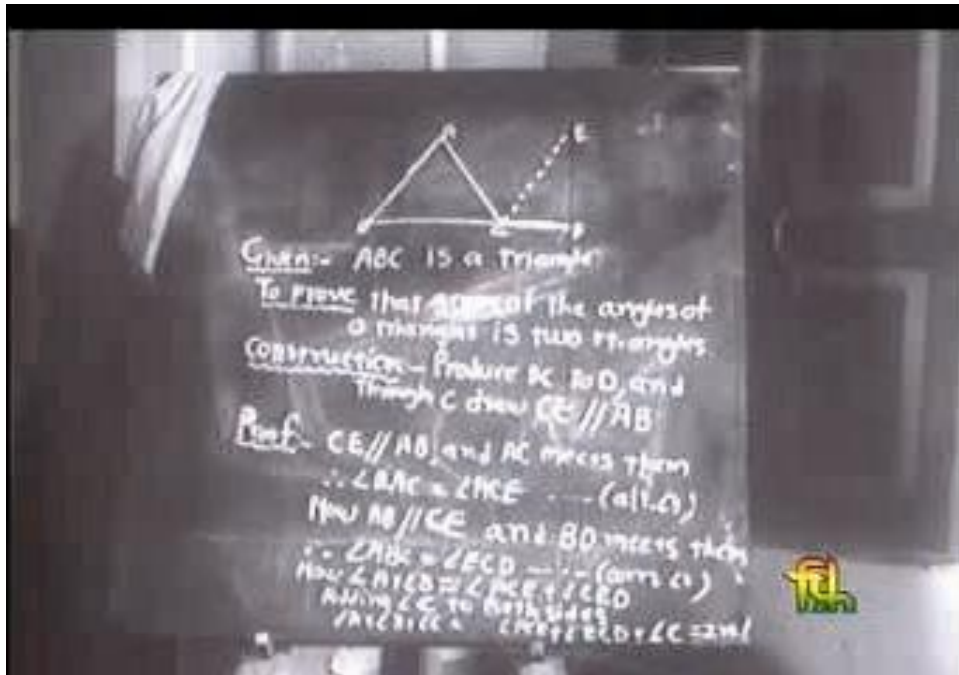 A
E
B
C
D
Given:- ABC is a triangle
To prove that sum of the angles of
a triangle is two rt. angles
Construction - Produce BC to D, and
Through C draw CE//AB
Proof - CE//AB, and AC meets them
∴ ∠BAC = ∠ACE ---- (alt. ∠s)
Now AB//CE and BD meets them
∴ ∠ABC = ∠ECD
Now ∠A+∠B = ∠ACE+∠ECD
Adding ∠C to both sides
∠A+∠B+∠C = ∠ACE+∠ECD+∠C =